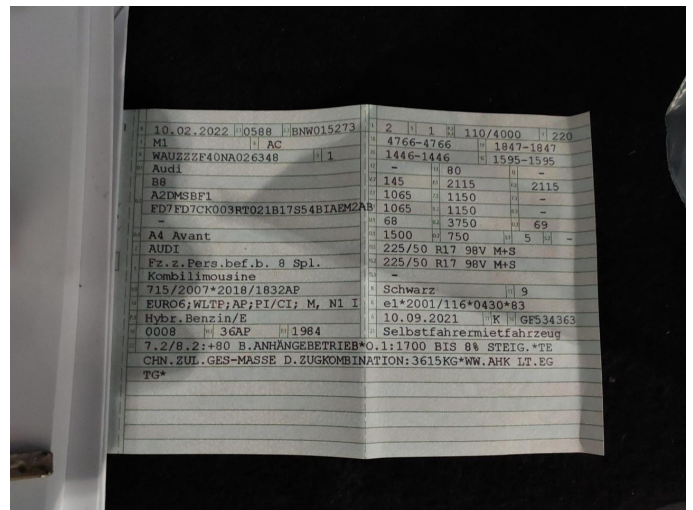 10.02.2022 0588 BNW015273
M1 AC
WAUZZZF40NA026348 1
Audi
B8
A2DMSBF1
FD7FD7CK003RT021B17S54BIAEM2AB
-
A4 Avant
AUDI
Fz.z.Pers.bef.b. 8 Spl.
Kombilimousine
715/2007*2018/1832AP
EURO6;WLTP;AP;PI/CI; M, N1 I
Hybr.Benzin/E
0008 36AP 1984
2 1 110/4000 220
4766-4766 1847-1847
1446-1446 1595-1595
- 80 -
145 2115 2115
1065 1150 -
1065 1150 -
68 3750 69
1500 750 5 -
225/50 R17 98V M+S
225/50 R17 98V M+S
-
Schwarz 9
e1*2001/116*0430*83
10.09.2021 K GF534363
Selbstfahrermietfahrzeug
7.2/8.2:+80 B.ANHÄNGEBETRIEB*O.1:1700 BIS 8% STEIG.*TE
CHN.ZUL.GES-MASSE D.ZUGKOMBINATION:3615KG*WW.AHK LT.EG
TG*